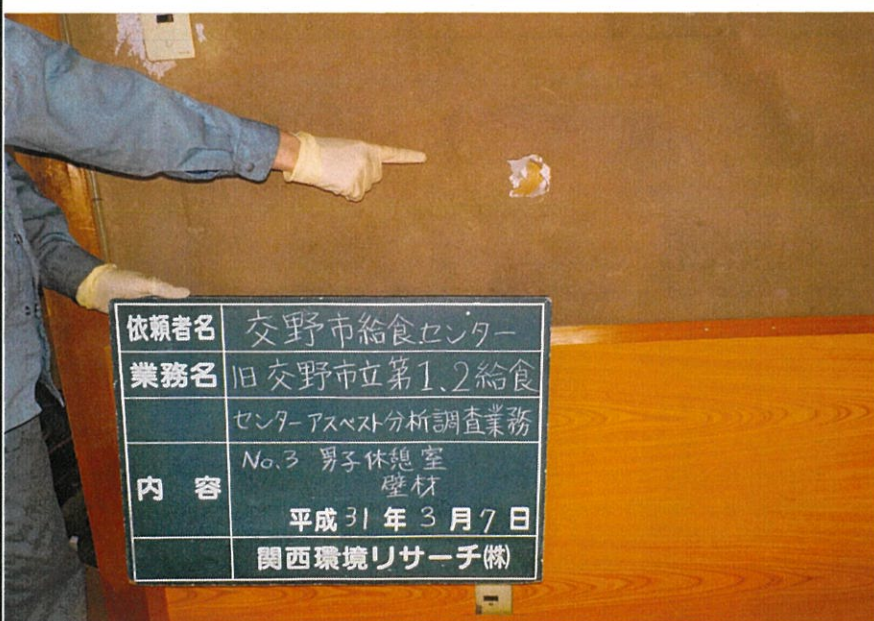 依頼者名 交野市給食センター
業務名 旧交野市立第1.2給食
センターアスベスト分析調査業務
内容 No.3 男子休憩室
壁材
平成31年3月7日
関西環境リサーチ(株)